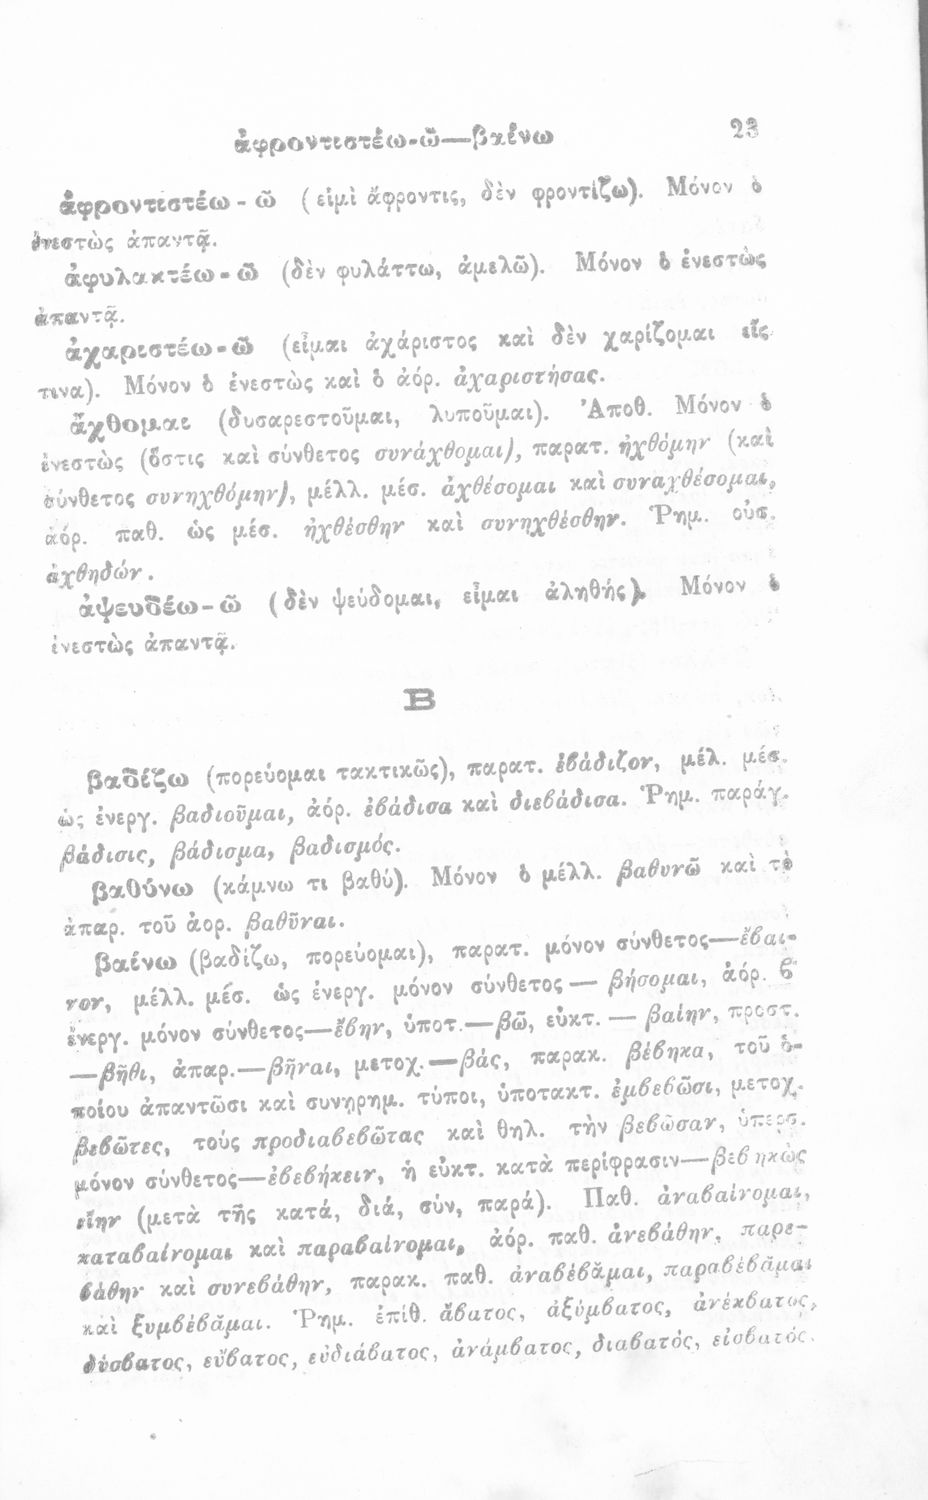 ἀφροντιστέω-ῶ—βαίνω 23
ἀφροντιστέω-ῶ (εἰμὶ ἄφροντις, δὲν φροντίζω). Μόνον ὁ
ἐνεστὼς ἀπαντᾷ.
ἀφυλακτέω-ῶ (δὲν φυλάττω, ἀμελῶ). Μόνον ὁ ἐνεστὼς
ἀπαντᾷ.
ἀχαριστέω-ῶ (εἶμαι ἀχάριστος καὶ δὲν χαρίζομαι εἴς
τινα). Μόνον ὁ ἐνεστὼς καὶ ὁ ἀόρ. ἀχαριστήσας.
ἄχθομαι (δυσαρεστοῦμαι, λυποῦμαι). Ἀποθ. Μόνον ὁ
ἐνεστὼς (ὅστις καὶ σύνθετος συνάχθομαι), παρατ. ἠχθόμην (καὶ
σύνθετος συνηχθόμην), μέλλ. μέσ. ἀχθέσομαι καὶ συναχθέσομαι,
ἀόρ. παθ. ὡς μέσ. ἠχθέσθην καὶ συνηχθέσθην. Ῥημ. οὐσ.
ἀχθηδών.
ἀψευδέω-ῶ (δὲν ψεύδομαι, εἶμαι ἀληθής). Μόνον ὁ
ἐνεστὼς ἀπαντᾷ.
Β
βαδίζω (πορεύομαι τακτικῶς), παρατ. ἐβάδιζον, μέλ. μέσ.
ὡς ἐνεργ. βαδιοῦμαι, ἀόρ. ἐβάδισα καὶ διεβάδισα. Ῥημ. παράγ.
βάδισις, βάδισμα, βαδισμός.
βαθύνω (κάμνω τι βαθύ). Μόνον ὁ μέλλ. βαθυνῶ καὶ τὸ
ἀπαρ. τοῦ ἀορ. βαθῦναι.
βαίνω (βαδίζω, πορεύομαι), παρατ. μόνον σύνθετος—ἔβαι-
νον, μέλλ. μέσ. ὡς ἐνεργ. μόνον σύνθετος— βήσομαι, ἀόρ. β′
ἐνεργ. μόνον σύνθετος—ἔβην, ὑποτ.—βῶ, εὐκτ.— βαίην, προστ.
—βῆθι, ἀπαρ.—βῆναι, μετοχ.—βάς, παρακ. βέβηκα, τοῦ ὁ-
ποίου ἀπαντῶσι καὶ συνῃρημ. τύποι, ὑποτακτ. ἐμβεβῶσι, μετοχ.
βεβῶτες, τοὺς προδιαβεβῶτας καὶ θηλ. τὴν βεβῶσαν, ὑπερσ.
μόνον σύνθετος—ἐβεβήκειν, ἡ εὐκτ. κατὰ περίφρασιν—βεβηκὼς
εἴην (μετὰ τῆς κατά, διά, σύν, παρά). Παθ. ἀναβαίνομαι,
καταβαίνομαι καὶ παραβαίνομαι, ἀόρ. παθ. ἀνεβάθην, παρε-
βάθην καὶ συνεβάθην, παρακ. παθ. ἀναβέβᾰμαι, παραβέβᾰμαι
καὶ ξυμβέβᾰμαι. Ῥημ. ἐπίθ. ἄβατος, ἀξύμβατος, ἀνέκβατος,
δύσβατος, εὔβατος, εὐδιάβατος, ἀνάμβατος, διαβατός, εἰσβατός.